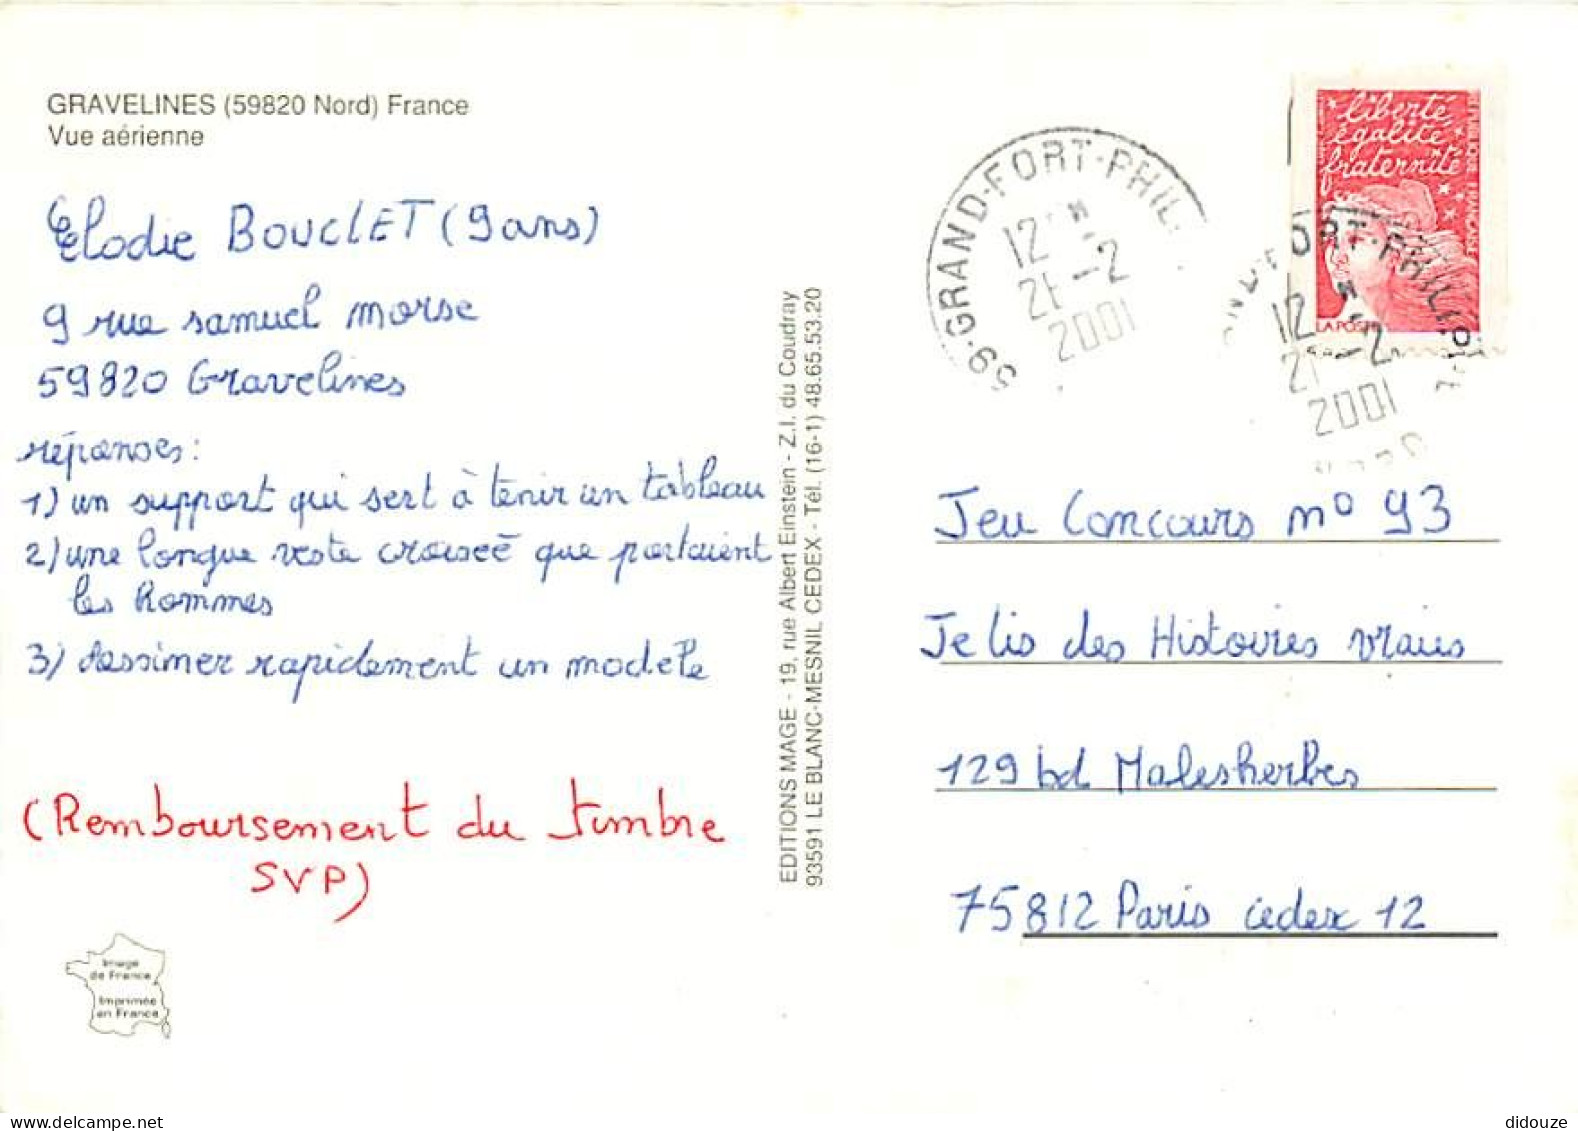 GRAVELINES (59820 Nord) France
Vue aérienne
Elodie BOUCLET (9 ans)
9 rue samuel morse
59820 Gravelines
réponses:
1) un support qui sert à tenir un tableau
2) une longue veste croiseé que portaient
les hommes
3) dessiner rapidement un modèle
(Remboursement du timbre
SVP)
Image
de France
Imprimée
en France
EDITIONS MAGE - 19, rue Albert Einstein - Z.I. du Coudray
93591 LE BLANC-MESNIL CEDEX - Tél. (16-1) 48.65.53.20
59-GRAND-FORT-PHIL
12 H
21-2
2001
liberté
égalité
fraternité
REPUBLIQUE FRANÇAISE
LA POSTE
FORT-PHILIPPE
12 H
21-2
2001
Jeu Concours n° 93
Je lis des Histoires vraies
129 bd Malesherbes
75812 Paris cedex 12
didouze